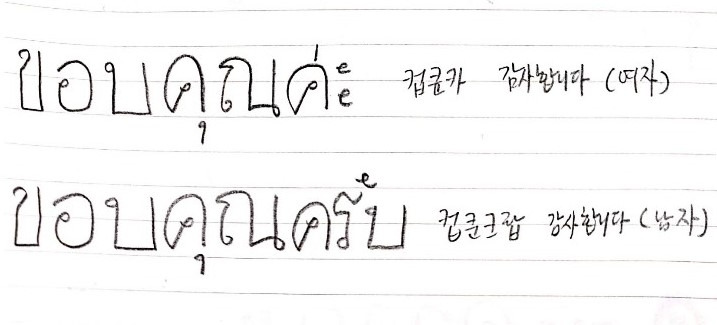 ขอบคุณค่ะ 컵쿤카 감사합니다 (여자)
ขอบคุณครับ 컵쿤크랍 감사합니다 (남자)